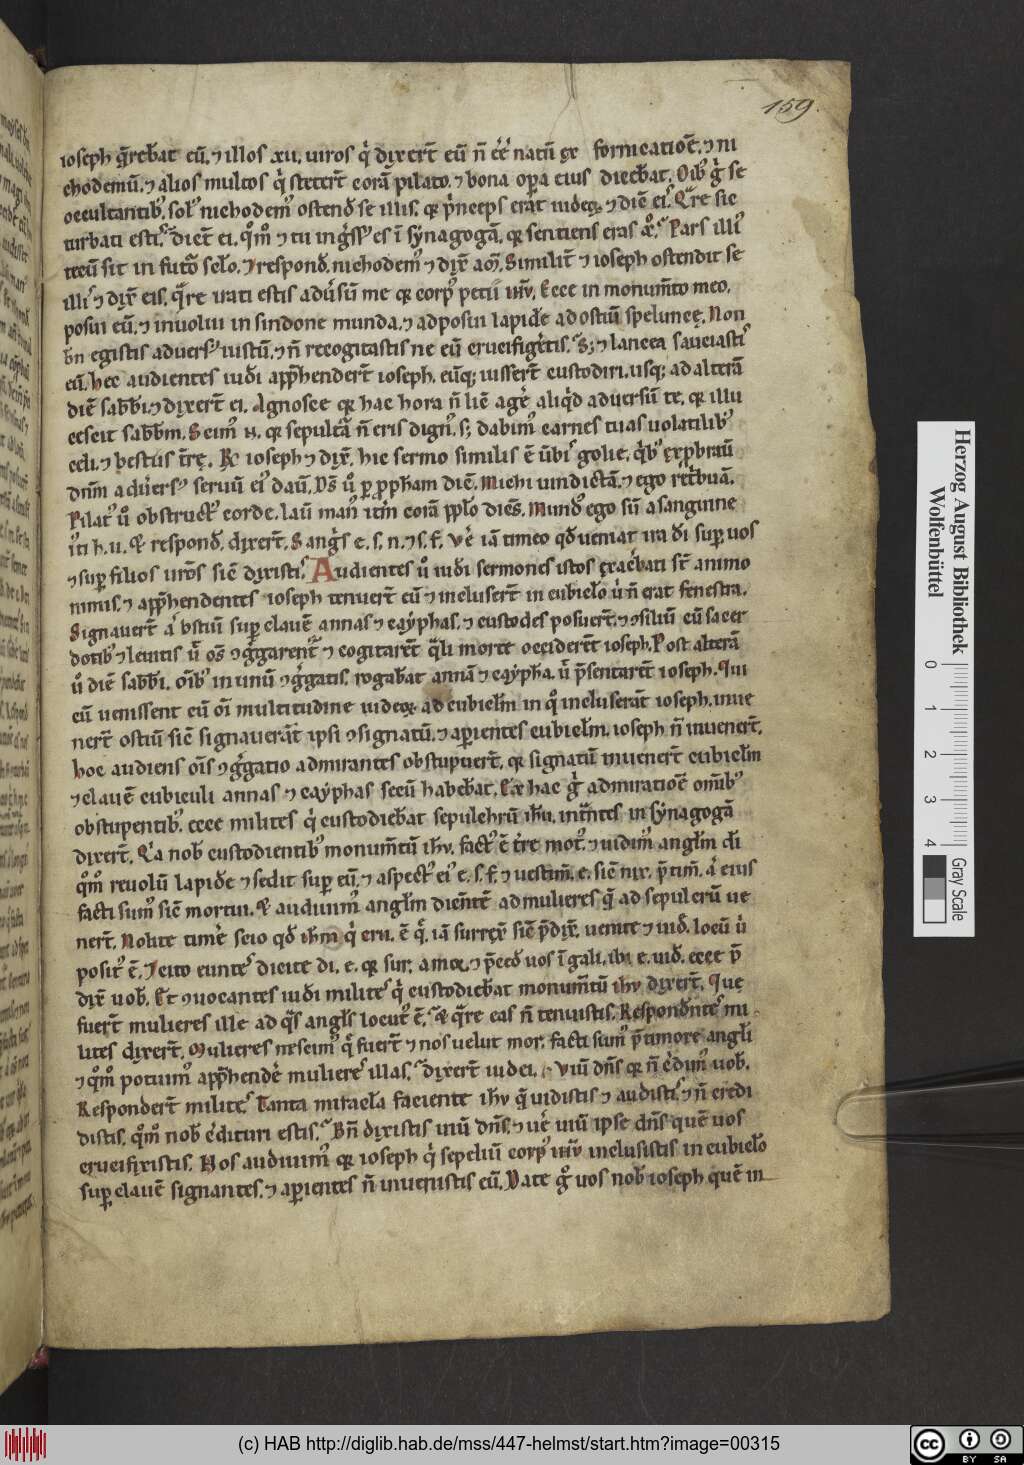 159.
ioseph q̄rebāt eū. ⁊ illos xii. uiros q̇ dixer̄t eū n̄ eē natū ex fornicatioē. ⁊ ni
chodemū. ⁊ alios multos q̇ steter̄t corā pilato. ⁊ bona opera eius diceb̄at. Oib᷒ g̊ se
occultantib᷒. sol᷒ nichodem᷒ ostend̄ se illis. q̄ p̄nceps erat iudeoꝝ. ⁊ diē eis. Q̄re sic
turbati estis. dict̄ ei. q̊m̊ ⁊ tu ing̊ssus es ī synagogā. q̄ sentiens eras Pars illi᷒
tecū sit in futo sclo. Et respond̄. nichodem᷒ ⁊ dix̄ am̄. Similit̄ ⁊ ioseph ostendit se
illis ⁊ dix̄ eis. q̄re irati estis adūsū me q̄ corp᷒ petii ihū. Ecce in monum̄to meo.
posui eū. ⁊ inuolui in sindone munda. ⁊ adposui lapidē ad ostiū speluncę. Non
bn̄ egistis aduers᷒ iustū. ⁊ n̄ recogitastis ne eū crucifigetis. S; ⁊ lancea sauciastis
eū. Hec audientes iudi app̄henderēt ioseph. eūq; iusser̄t custodiri. usq; ad alterā
diē sabbi. ⁊ dixer̄t ei. Agnosce q̄ hac hora n̄ licē agē aliq̇d aduersū te. q̄ illu
cescit sabbm̄. Scim᷒ n̄. q̄ sepultā n̄ eris dign᷒. s; dabim᷒ carnes tuas uolatilib᷒
celi. ⁊ bestiis tr̄ę. Rc̄ ioseph ⁊ dix̄. hic sermo similis ē ūbis golie. q̇ b᷒ exp̄brau̅
dn̄m aduers᷒ seruū ei᷒ dauid. Ds̄ ū p̱ pph̄am dic̄. Michi uindictā. ⁊ ego ret̄buā.
Pilat᷒ ū obstruct᷒ corde. lau̅ man᷒ itm̄ corā pp̄lo dicēs. Mund᷒ ego sū a sanguine
i᷒ti h. u. Et respond̄. dixer̄t. Sangs̄ e. s. n. ⁊ s. f. vē iā timeo qd̄ ueniat ira di super uos
⁊ super filios uros sic̄ dixistis. Audientes ū iudi sermones istos exacebati s̄t animo
nimis. ⁊ app̄hendentes ioseph tenuer̄t eū ⁊ incluser̄t in cubiclo ū n̄ erat fenestra.
Signauer̄t a ostiū super clauē annas ⁊ cayphas. ⁊ custodes posuer̄t. ⁊ ꝯsiliū cū sacer
dotib᷒ ⁊ leuitis ū os̄ ꝯg̊garent᷑ ⁊ cogitarēt q̄li morte occiderēt ioseph. Post alterā
ū diē sabbi. oīb᷒ in unū ꝯg̊gatis. rogabāt annā ⁊ cayphā. ū p̄sentarēt ioseph. Qui
cū uenissent cū oī multitudine iudeoꝝ ad cubiclm̄ in q̊ incluserāt ioseph. inue
nert̄ ostiū sic̄ signauerāt ipsi ꝯsignatū. ⁊ aperientes cubiclm̄. ioseph n̄ inuener̄t.
hoc audiens ois̄ ꝯg̊gatio admirantes obstupuer̄t. q̄ signatū inuener̄t cubiclm̄
⁊ clauē cubiculi annas ⁊ cayphas secū habebāt. Ex hac g̊ admiratioē omīb᷒
obstupentib᷒. ecce milites q̇ custodiebāt sepulchrū ihū. int̄ntes in synagogā
dixer̄t. Q̇a nob᷒ custodientib᷒ monum̄tū ihū. fact᷒ ē t̄re mot᷒. ⁊ uidim᷒ anglm̄ di
q̊m̊ reuolū lapidē ⁊ sedit super eū. ⁊ aspect᷒ ei᷒ e. s. f. ⁊ uestim̄. e. sic̄ nix. p̄ tim̄. a eius
facti sum᷒ sic̄ mortui. Et audiuim᷒ anglm̄ dicentē ad mulieres q̄ ad sepulcrū ue
ner̄t. Nolite timē scio qd̄ ihm̄ q̇ eru. ē q̊. iā surrex̄ sic̄ p̄dix̄. uenite ⁊ uid̄. locū ū
posit᷒ ē. Et cito euntes dicite di. e. q̄ sur. a mor. ⁊ p̄ced̄ uos ī gali. ibi e. uid̄. ecce p̄
dix̄ uob̄. Et ꝯuocantes iudi milites q̇ custodiebāt monum̄tū ihū dixer̄t. Que
fuer̄t mulieres ille ad q̄s angls̄ locut᷒ ē. Et q̄re eas n̄ tenuistis. Respond̄ntes mi
lites dixer̄t. Mulieres nescim᷒ q̄ fuer̄t ⁊ nos uelut mor. facti sum᷒ p̄ timore angli
⁊ q̊m̊ potuim᷒ app̄hendē mulieres illas. dixer̄t iudei. Viuit dn̄s q̄ n̄ c̄dim᷒ uob̄.
Responder̄t milites. Tanta miracla facientē ihū q̄ uidistis ⁊ audistis. ⁊ n̄ credi
distis. q̊m̊ nob̄ c̄dituri estis. Bn̄ dixistis uiū dn̄s. ⁊ ue uiū ipse dn̄s quē uos
crucifixistis. Nos audiuim᷒ q̄ ioseph q̇ sepeliū corp᷒ ihū inclusistis in cubiclo
super clauē signantes. ⁊ aperientes n̄ inuenistis eū. Date g̊ uos nob̄ ioseph quē in
Herzog August Bibliothek
Wolfenbüttel
0 1 2 3 4
Gray Scale
(c) HAB http://diglib.hab.de/mss/447-helmst/start.htm?image=00315
cc BY SA